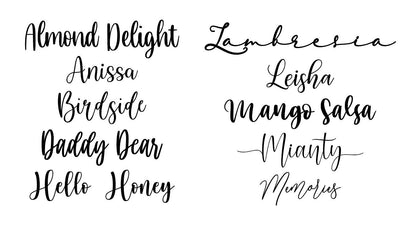 Almond Delight
Anissa
Birdside
Daddy Dear
Hello Honey
Lambresia
Leisha
Mango Salsa
Mianty
Memories